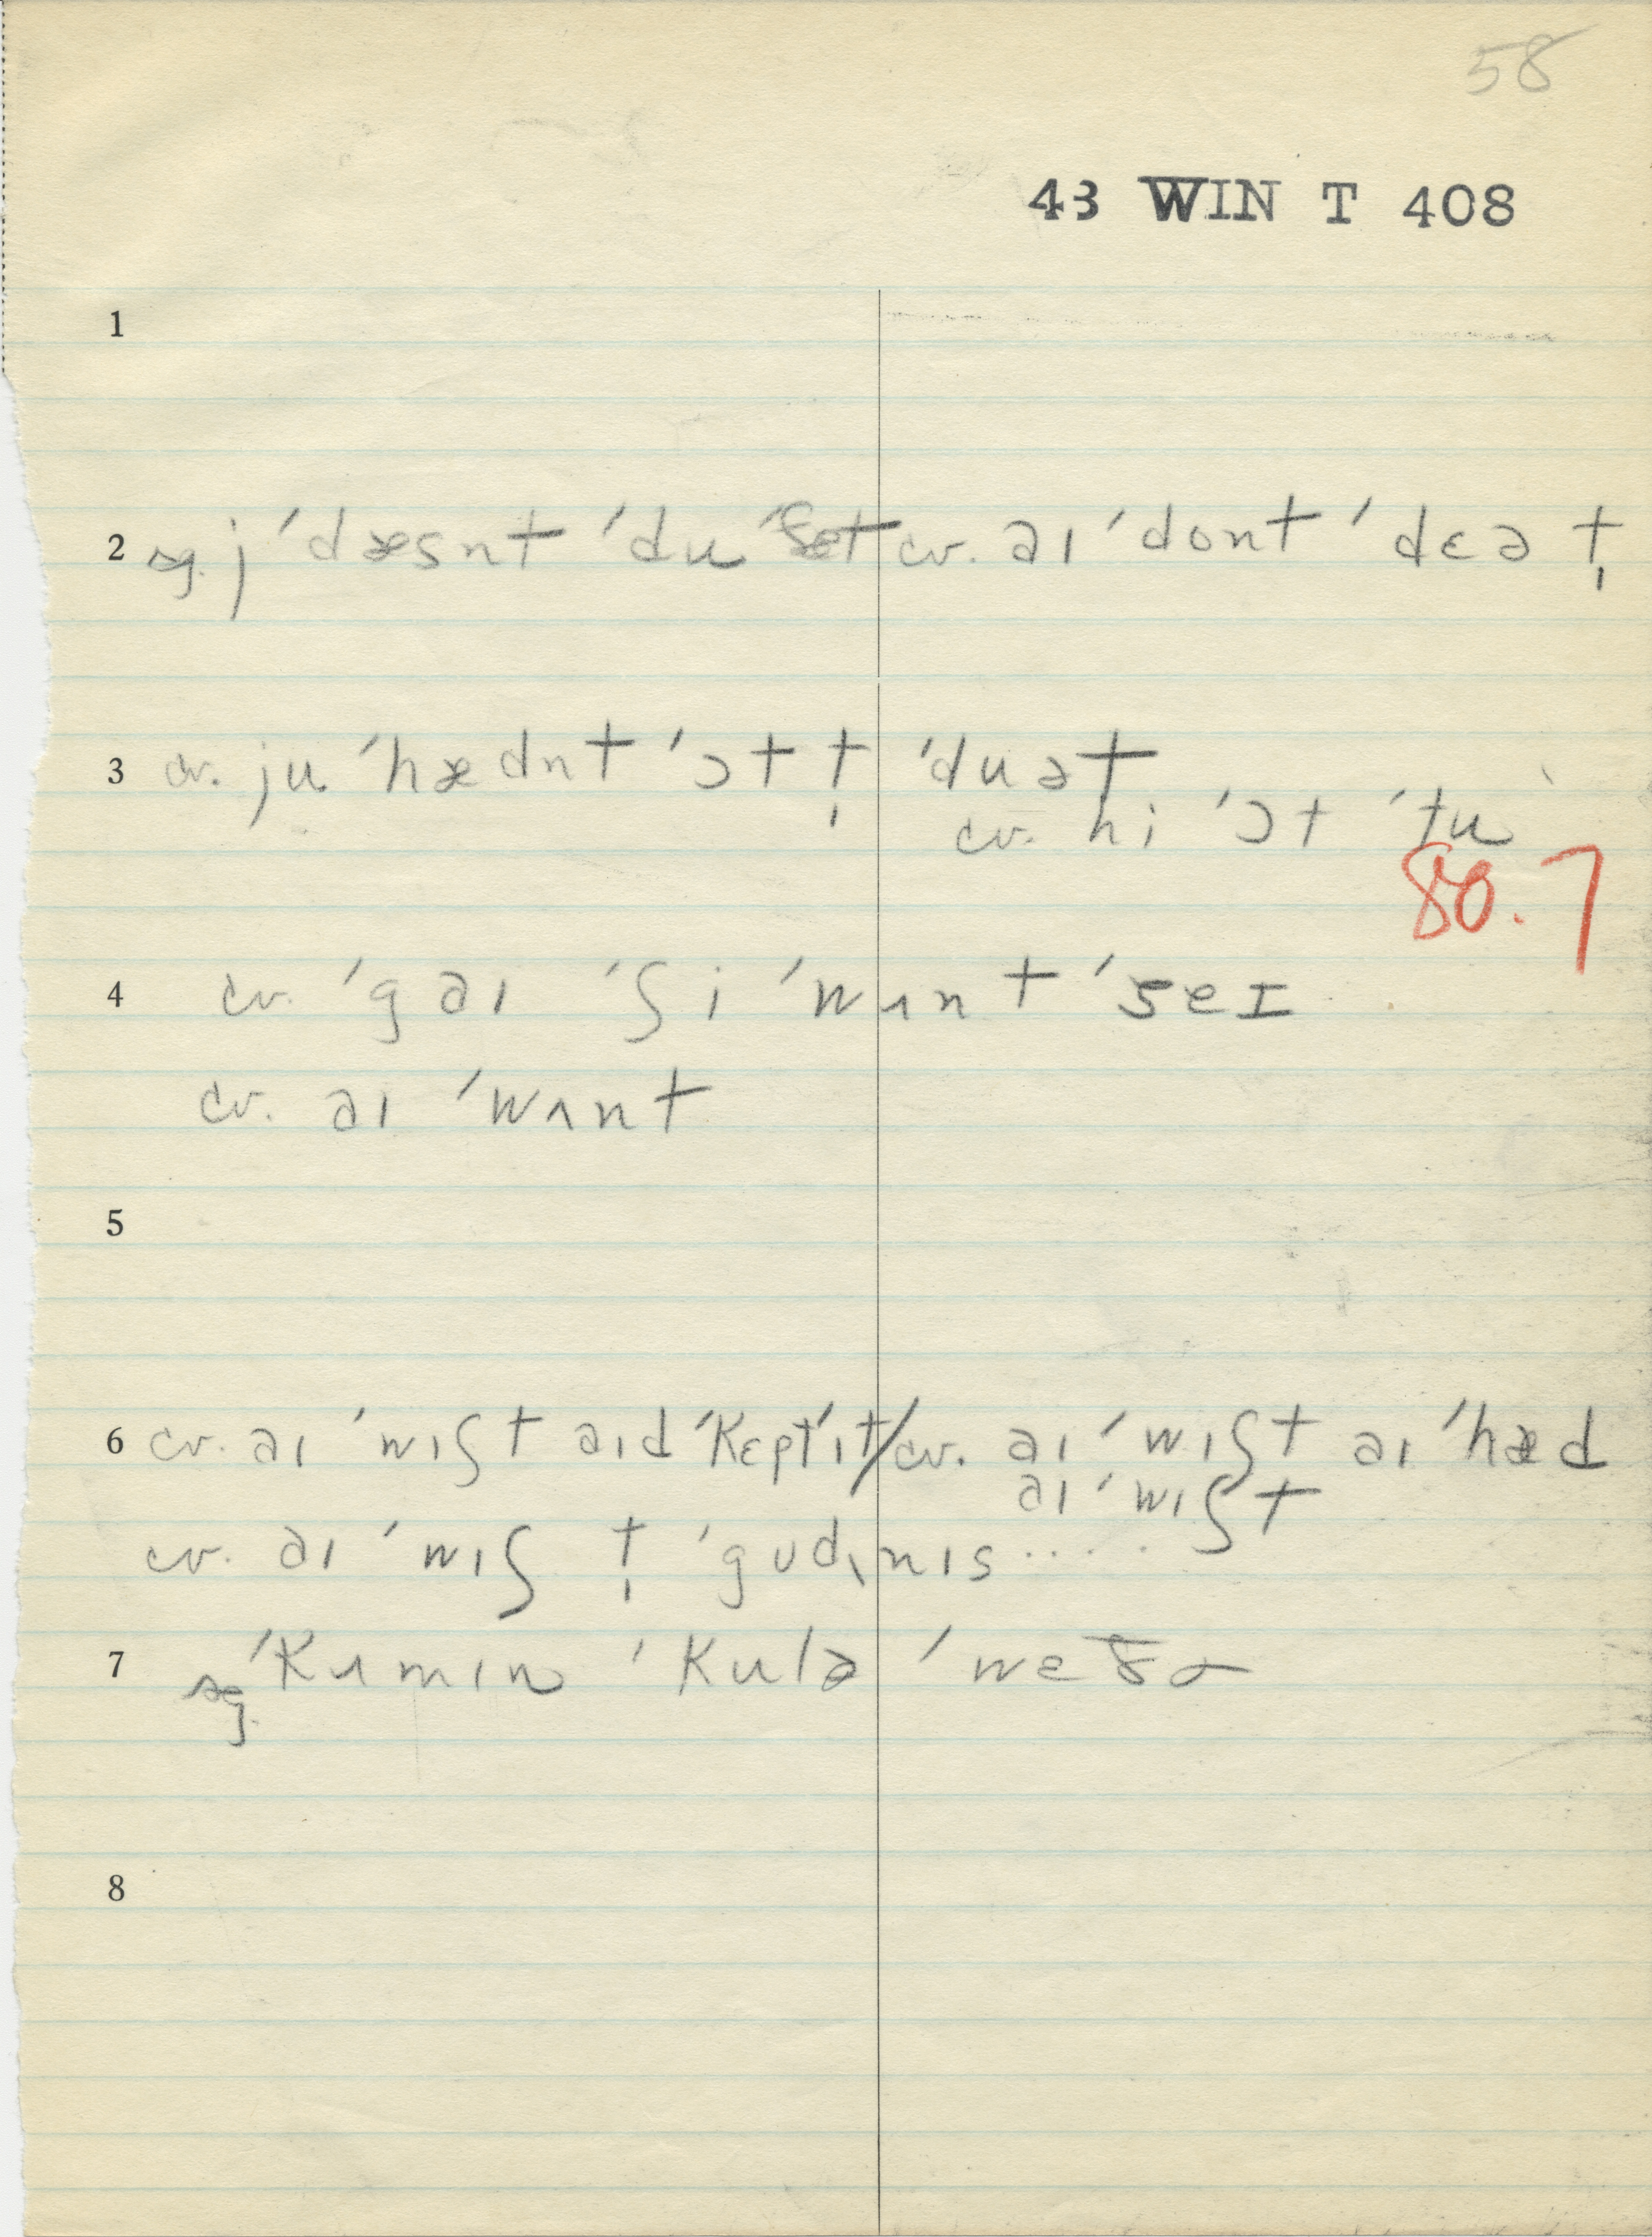 58
43 WIN T 408
1
2 sg. j ˈdæsnt ˈdu ˈðæt cv. əɪ ˈdont ˈdɛə t̩
3 cv. ju ˈhædnt ˈɔt t̩ ˈduət
cv. hi ˈɔt ˈtu
80.7
4 cv. ˈgəɪ ˈʃi ˈwʌnt ˈseɪ
cv. əɪ ˈwʌnt
5
6 cv. əɪ ˈwɪʃt əɪd ˈkɛpt ˈɪt / cv. əɪ ˈwɪʃt əɪ ˈhæd
əɪ ˈwɪʃt
cv. əɪ ˈwɪʃ t̩ ˈgudɪnɪs .....
7 sg. ˈkʌmɪn ˈkulə ˈwɛðɚ
8